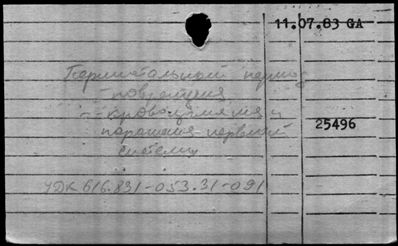 11.07.83 GA
Перинатальный период
- повреждения
- кровоизлияния и
поражения нервной
системы
25496
УДК 616.831-053.31-091